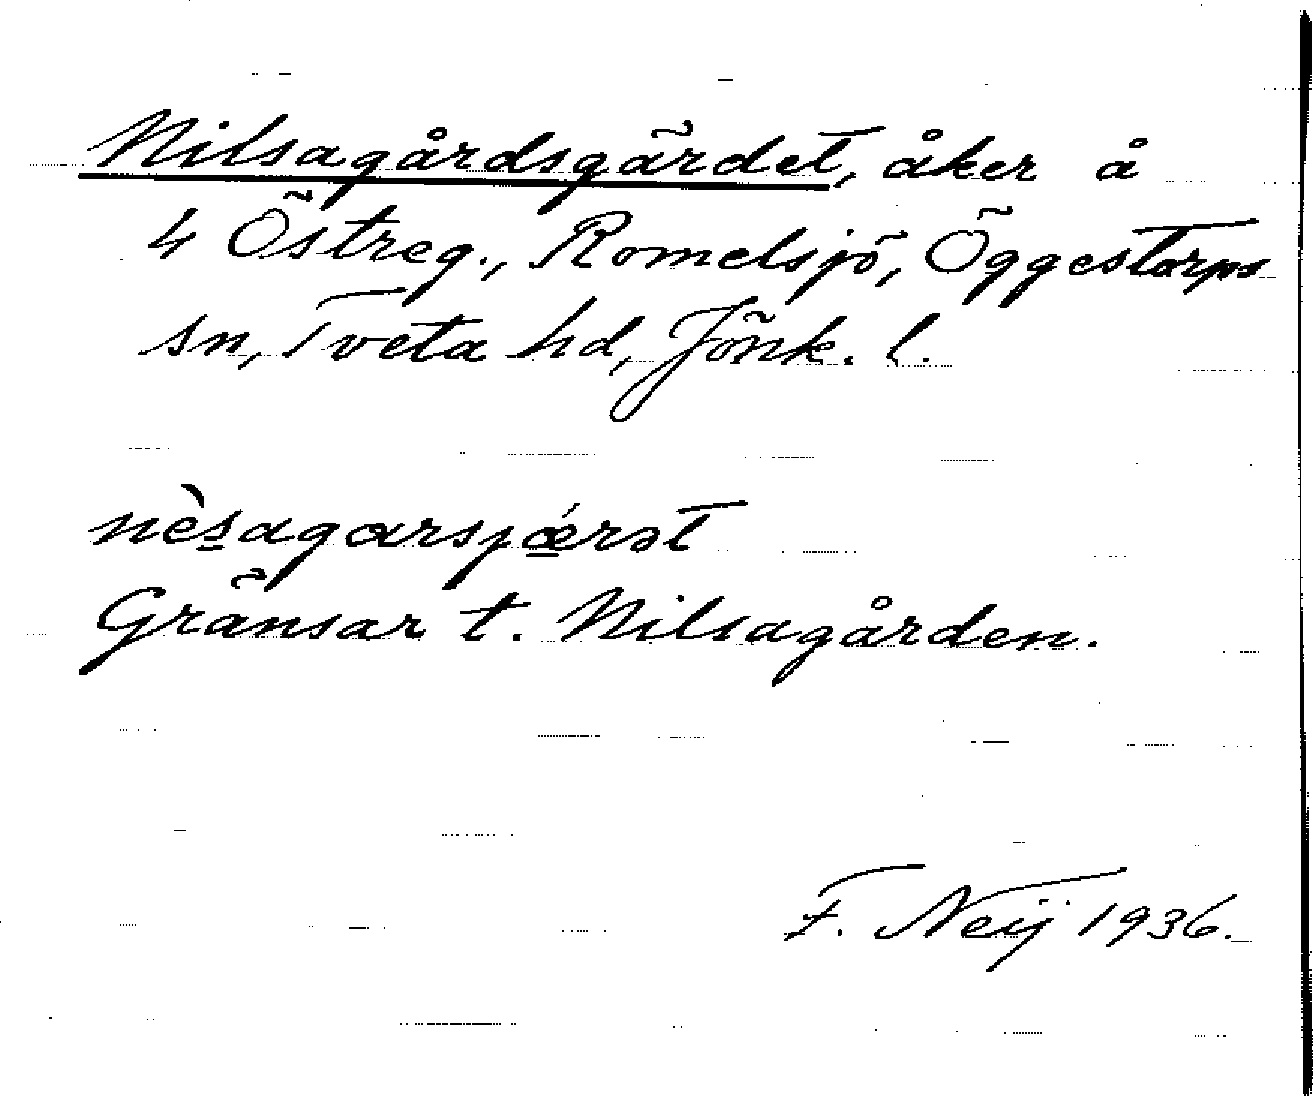 Nilsagårdsgärdet, åker å
4 Östreg., Romelsjö, Öggestorps
sn, Tveta hd, Jönk. l.
nèsagarsjǽrət
Gränsar t. Nilsagården.
F. Neij 1936.